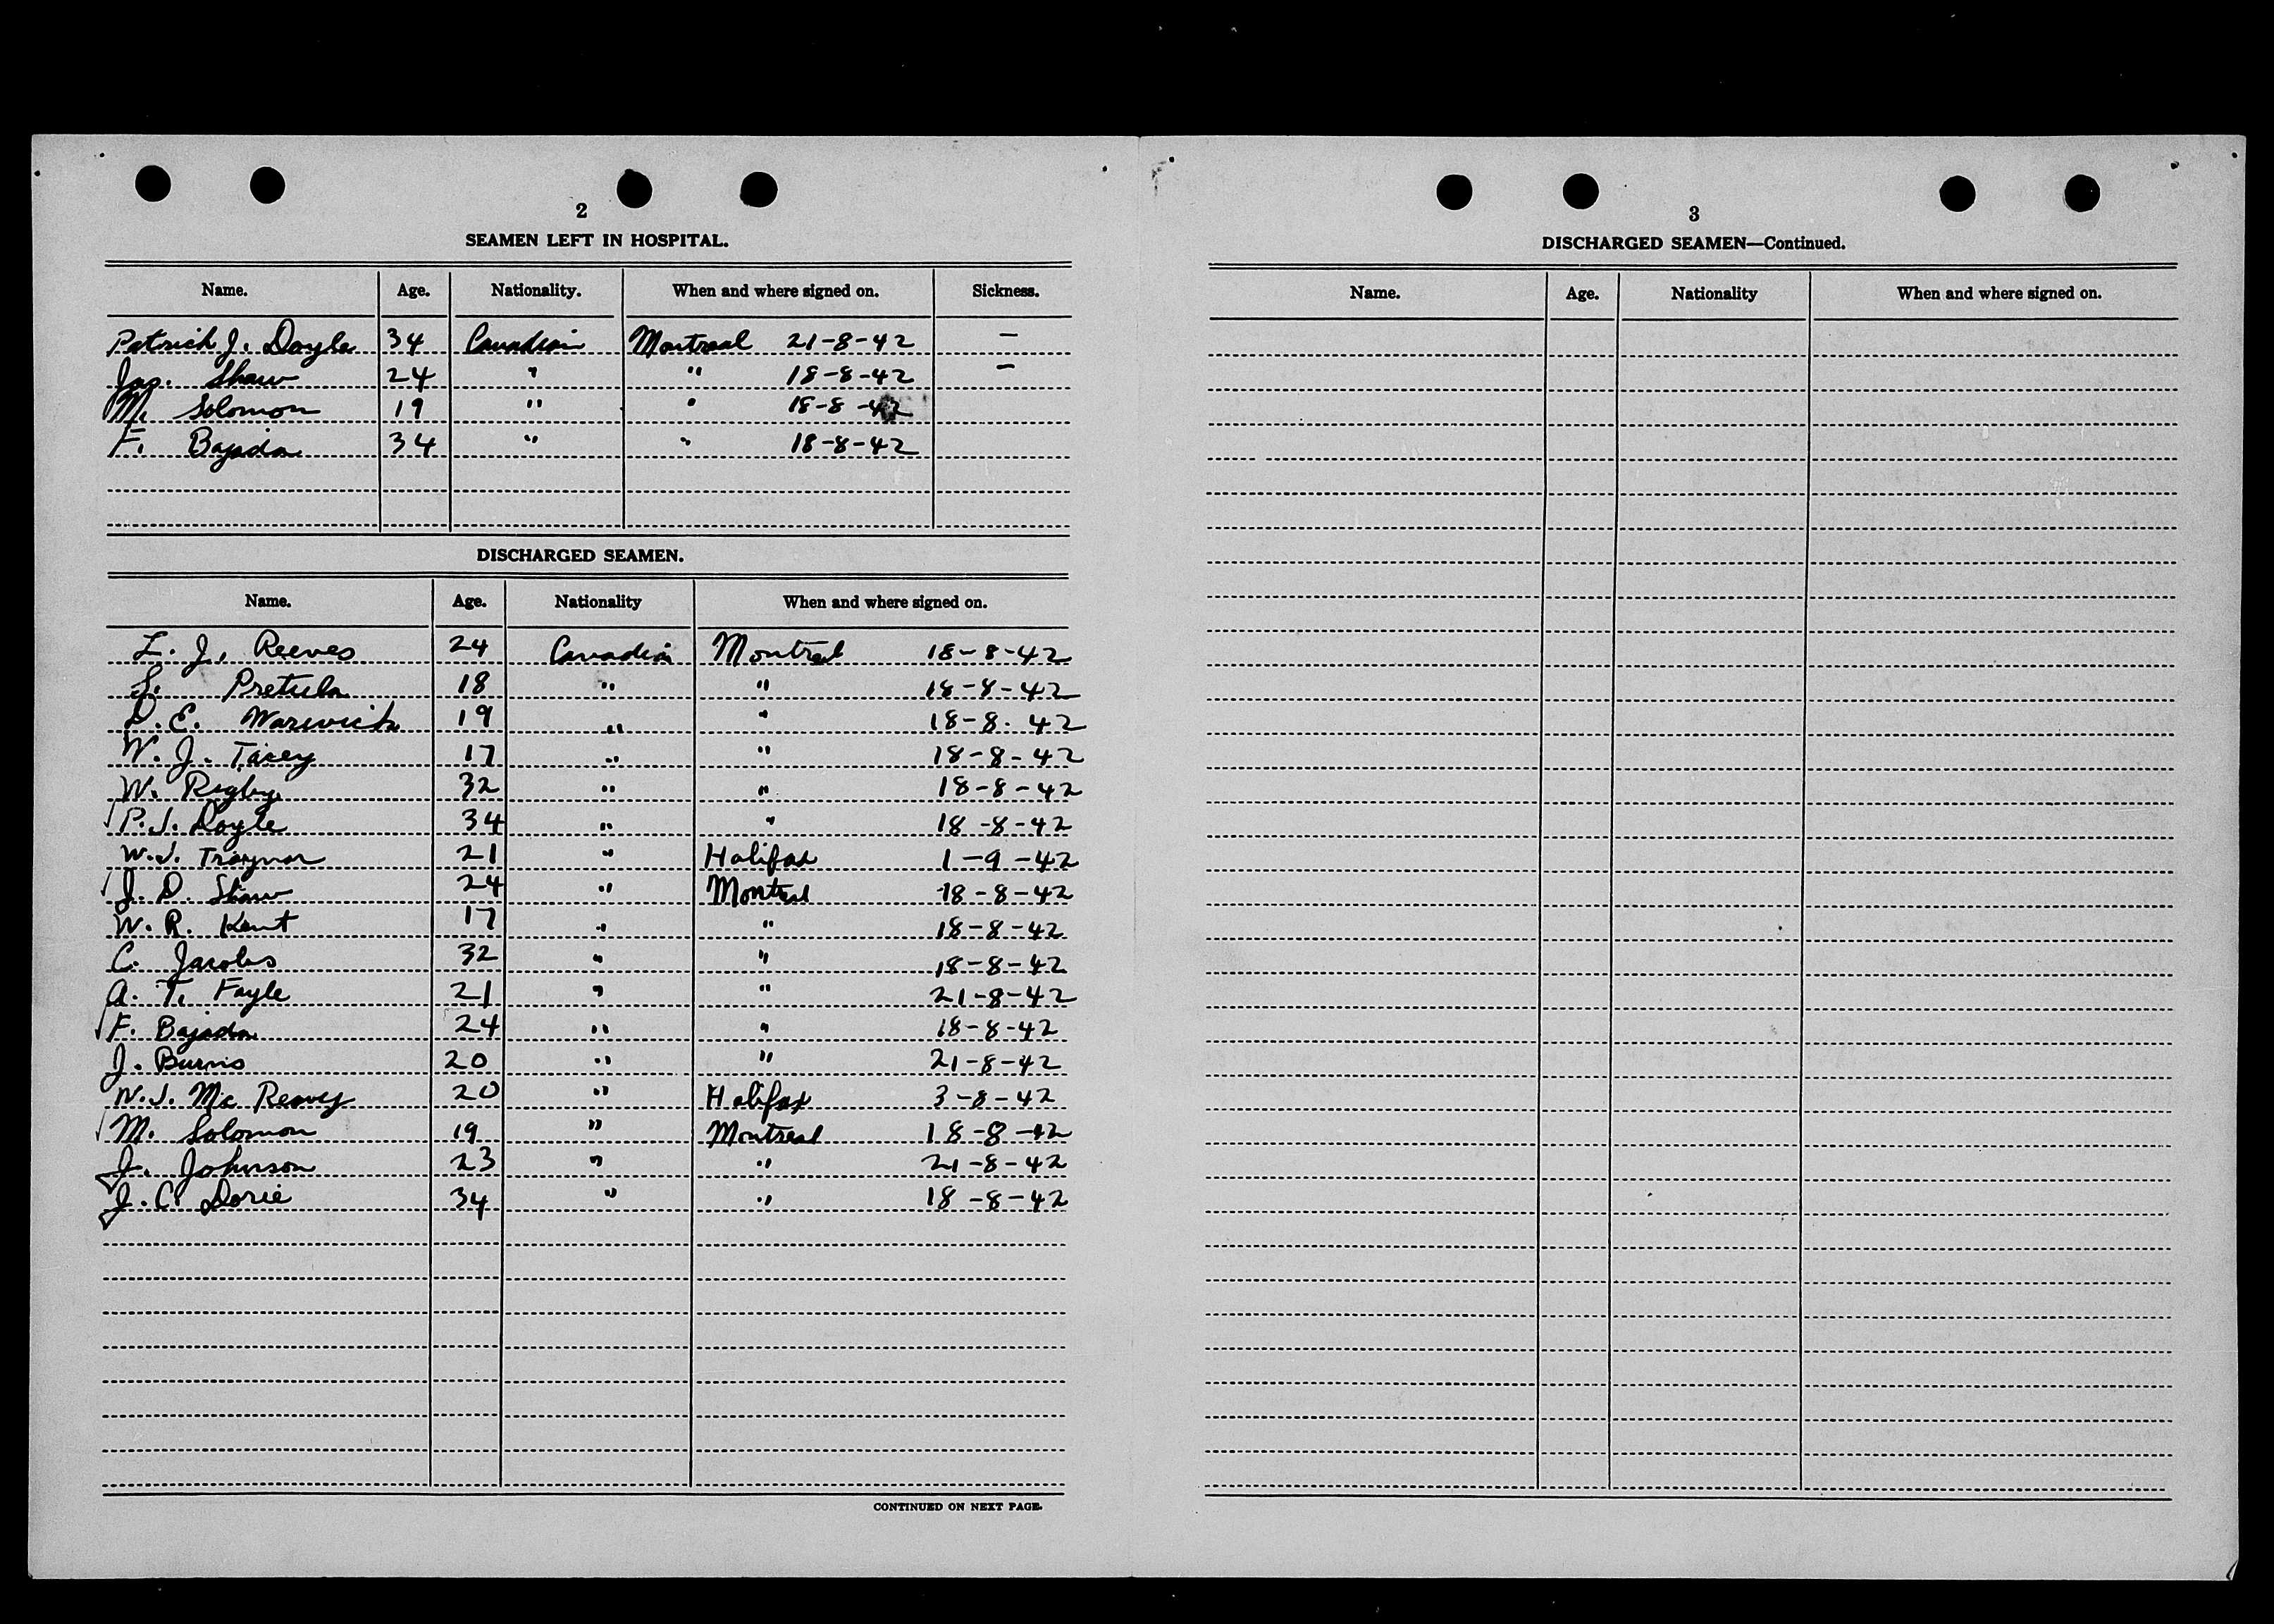 2
SEAMEN LEFT IN HOSPITAL.
Name. Age. Nationality. When and where signed on. Sickness.
Patrick J. Doyle 34 Canadian Montreal 21-8-42 —
Jas. Shaw 24 " " 18-8-42 —
M. Solomon 19 " " 18-8-42
F. Bajada 34 " " 18-8-42
DISCHARGED SEAMEN.
Name. Age. Nationality When and where signed on.
L. J. Reeves 24 Canadian Montreal 18-8-42
S. Pretula 18 " " 18-8-42
D. E. Warwick 19 " " 18-8-42
W. J. Tacey 17 " " 18-8-42
W. Rigby 32 " " 18-8-42
√ P. J. Doyle 34 " " 18-8-42
W. J. Traynor 21 " Halifax 1-9-42
√ J. D. Shaw 24 " Montreal 18-8-42
W. R. Kent 17 " " 18-8-42
C. Jacobs 32 " " 18-8-42
A. T. Fayle 21 " " 21-8-42
√ F. Bajada 24 " " 18-8-42
J. Burns 20 " " 21-8-42
W. J. Mc Reavy 20 " Halifax 3-8-42
√ M. Solomon 19 " Montreal 18-8-42
J. Johnson 23 " " 21-8-42
J. C. Dorie 34 " " 18-8-42
CONTINUED ON NEXT PAGE.
3
DISCHARGED SEAMEN—Continued.
Name. Age. Nationality When and where signed on.